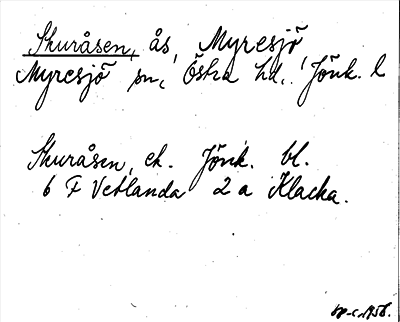 Skuråsen, ås, Myresjö,
Myresjö sn, Östra hd, Jönk. l
Skuråsen, ek. Jönk. bl.
6 F Vetlanda 2 a Klacka.